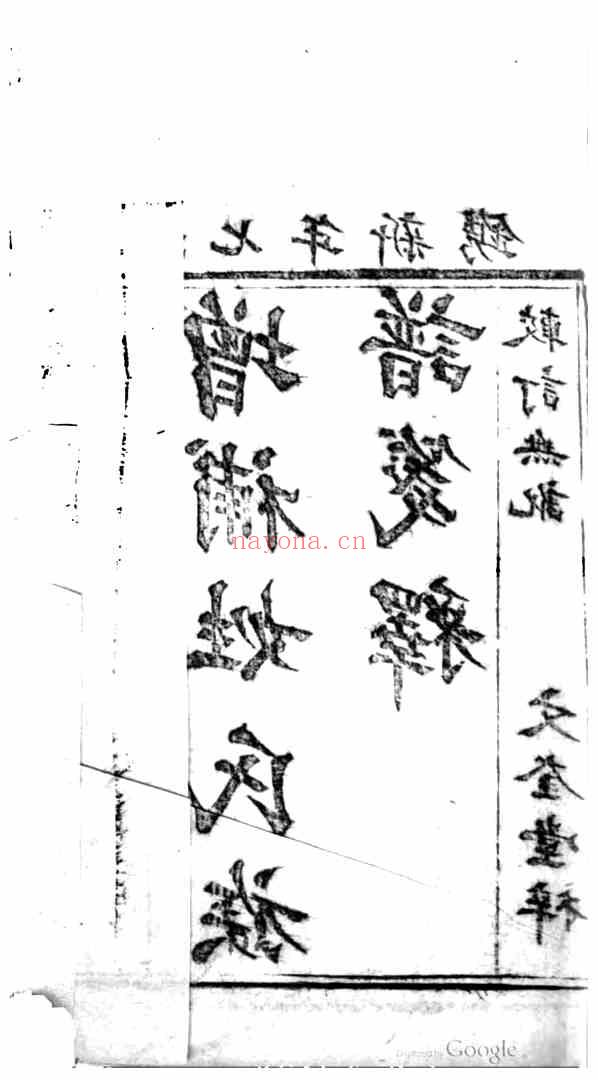 七年新鐫
增補姓氏族
譜箋釋
較訂無訛 文奎堂梓
nayona.cn
Digitized by Google